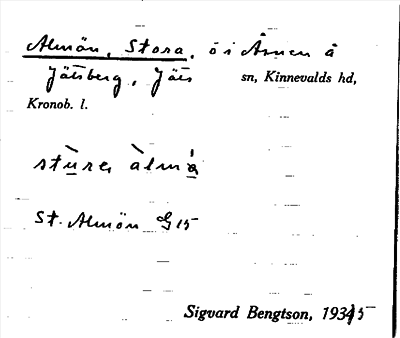 Almön, Stora, ö i Åsnen å
Jätsberg, Jäts sn, Kinnevalds hd,
Kronob. l.
stùra àlmá
St. Almön G 15
Sigvard Bengtson, 1935